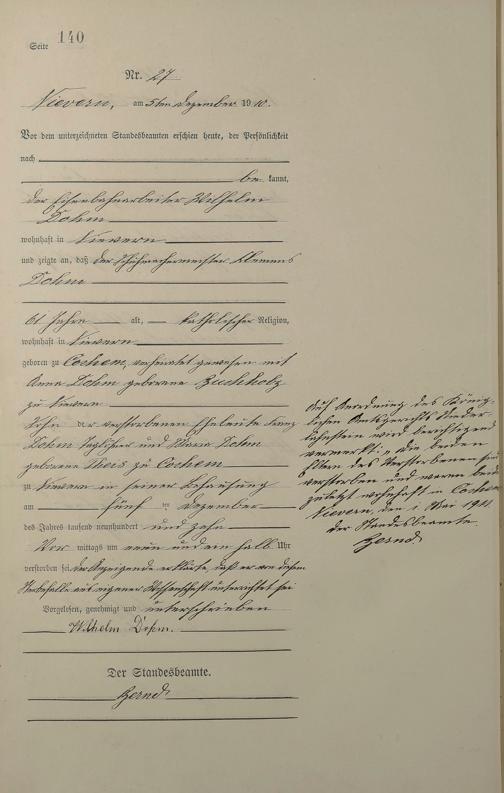 Seite 140
Nr. 27
Nievern, am 5ten Dezember 1910.
Vor dem unterzeichneten Standesbeamten erschien heute, der Persönlichkeit
nach
be kannt,
der Eisenbahnarbeiter Wilhelm
Dohm
wohnhaft in Nievern
und zeigte an, daß der Schuhmachermeister Klemens
Dohm
61 Jahre alt, katholischer Religion,
wohnhaft in Nievern
geboren zu Cochem, verheiratet gewesen mit
Anna Dohm geborene Buchholz
zu Nievern
Sohn der verstorbenen Eheleute Franz
Dohm und Maria Dohm
geborene Theis zu Cochem
zu Nievern in seiner Behausung
am fünf ten Dezember
des Jahres tausend neunhundert und zehn
Vor mittags um neun und ein halb Uhr
verstorben sei, der Anzeigende erklärte, daß er von diesem
Sterbefalle aus eigener Wissenschaft unterrichtet sei
Vorgelesen, genehmigt und unterschrieben
Wilhelm Dohm.
Der Standesbeamte.
Auf Anordnung des König-
lichen Amtsgerichts Nieder-
lahnstein wird berichtigend
vermerkt: "Die beiden
Eltern des Verstorbenen sind
verstorben und waren beide
zuletzt wohnhaft in Cochem
Nievern, den 1 Mai 1911
der Standesbeamte